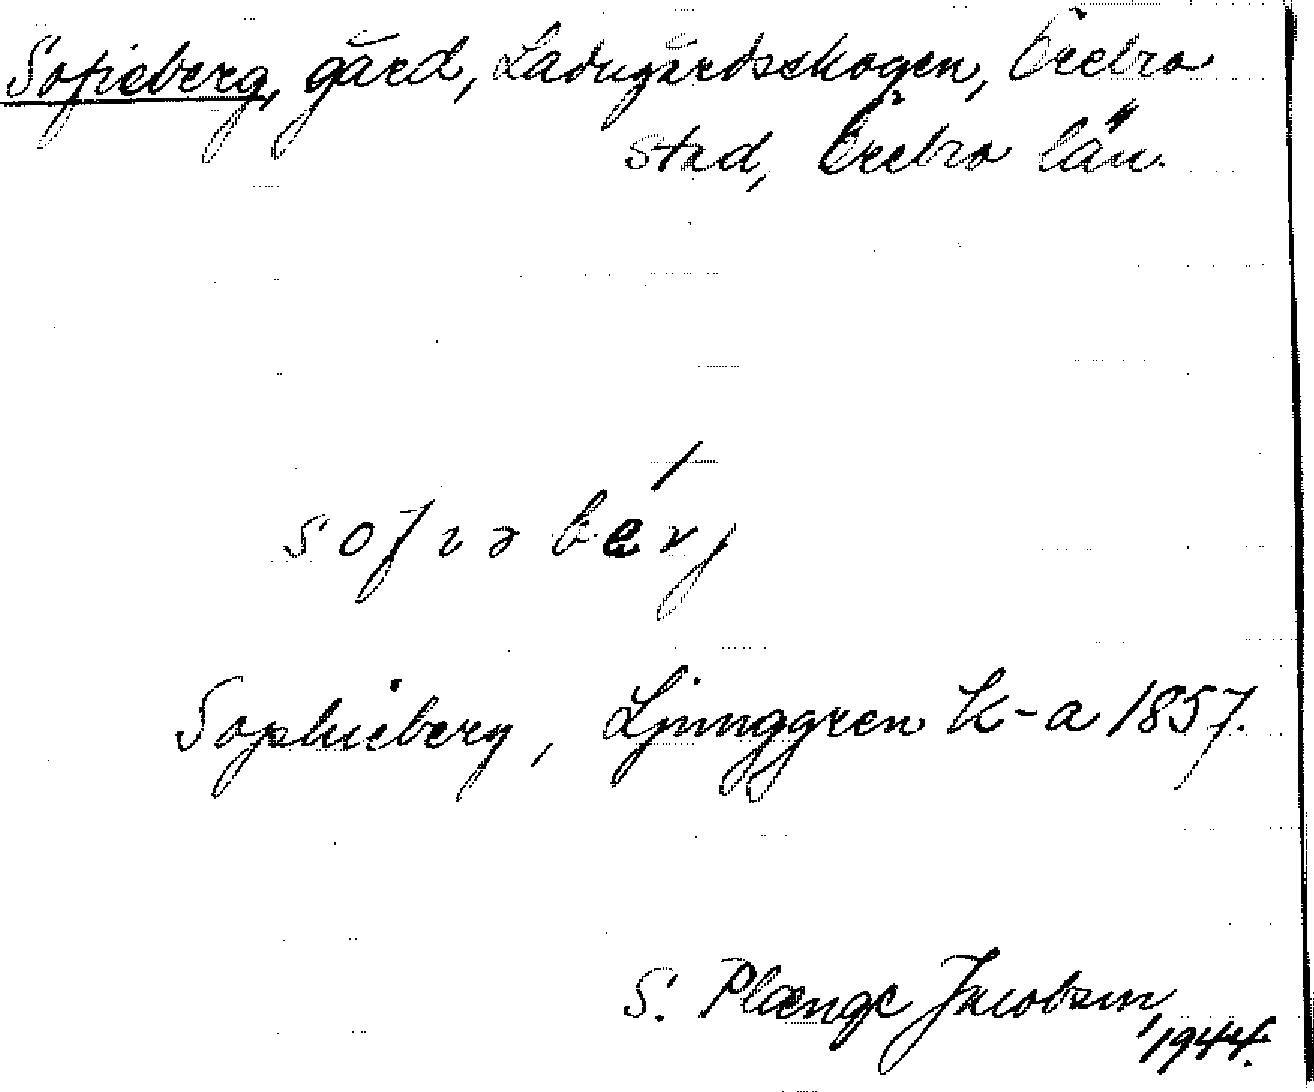 Sofieberg, gård, Ladugårdsskogen, Örebro
stad, Örebro län.
sofiəbærj
Sophieberg, Ljunggren K-a 1857.
S. Plænge Jacobson,
1944.